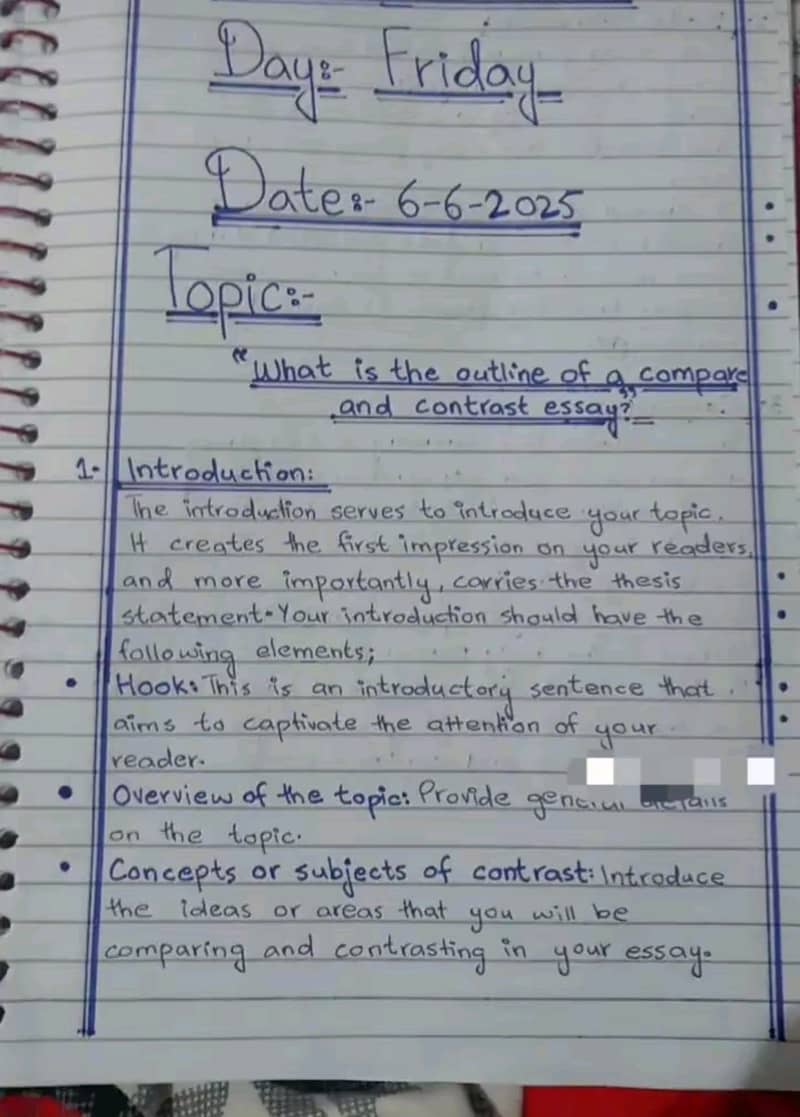 Day:- Friday
Date:- 6-6-2025
Topic:-
"What is the outline of a compare
and contrast essay?"
1- Introduction:
The introduction serves to introduce your topic.
It creates the first impression on your readers,
and more importantly, carries the thesis
statement. Your introduction should have the
following elements;
• Hook: This is an introductory sentence that
aims to captivate the attention of your
reader.
• Overview of the topic: Provide general details
on the topic.
• Concepts or subjects of contrast: Introduce
the ideas or areas that you will be
comparing and contrasting in your essay.